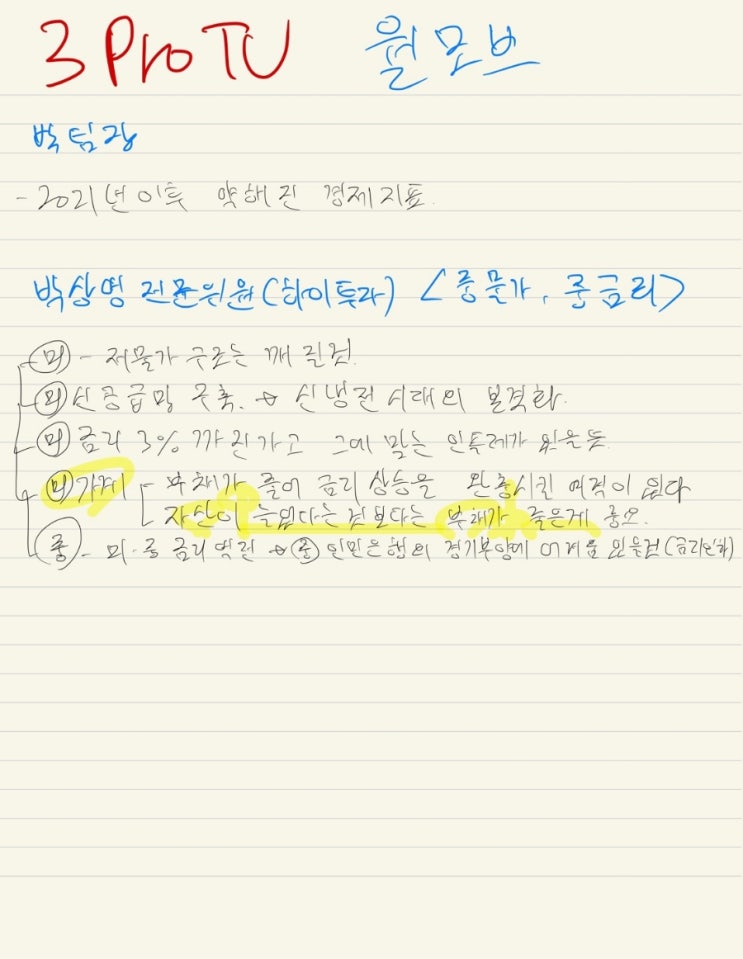 3 Pro TV 월모브
박팀장
- 2021년 이후 약해진 경제지표.
박상영 전문위원 (하이투자) <중물가, 중금리>
미 - 저물가 구조는 깨질것.
미 신공급망 구축. → 신냉전시대의 본격화.
미 금리 3% 까진가고 그에 맞는 인독례가 있을듯.
미 가계 - 부채가 줄어 금리 상승을 완충시킨 여력이 있다
자산이 늘었다는것 보다는 부채가 줄은게 중요.
중 - 미·중 금리역전 → 중 인민은행의 경기부양에 어려움 있을것 (금리인하)